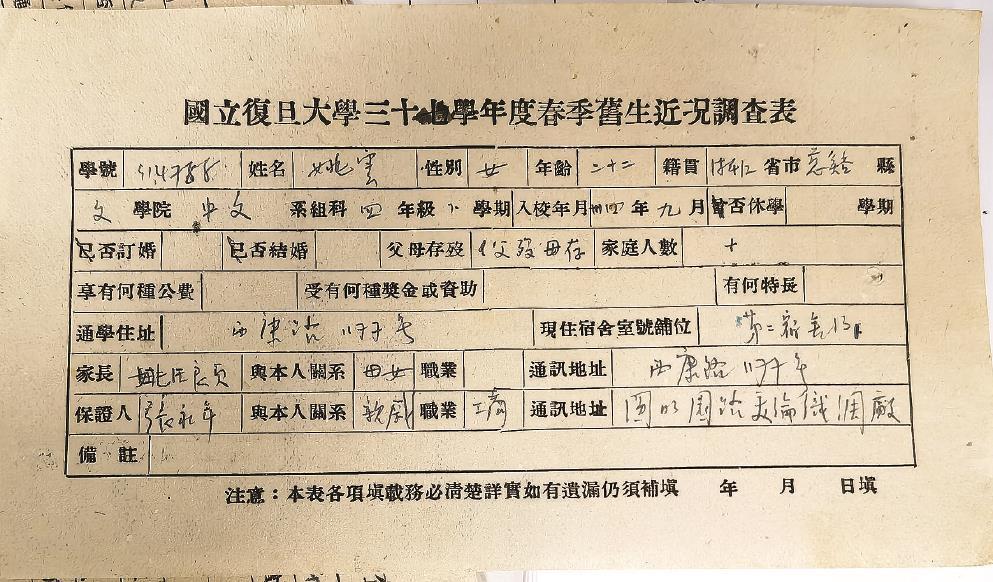 國立復旦大學三十七學年度春季舊生近況調查表
學號 姓名 姚雲 性別 女 年齡 二十二 籍貫 浙江 省市 慈谿 縣
文 學院 中文 系組科 四 年級 下 學期 入校年月 卅四 年 九 月 曾否休學 學期
已否訂婚 已否結婚 父母存歿 父歿母存 家庭人數 十
享有何種公費 受有何種獎金或資助 有何特長
通學住址 西康路 號 現住宿舍室號舖位 第二宿舍
家長 與本人關系 母女 職業 通訊地址 西康路 號
保證人 張永年 與本人關系 親戚 職業 工商 通訊地址 圓明園路美倫織綢廠
備註
注意：本表各項填載務必清楚詳實如有遺漏仍須補填 年 月 日填